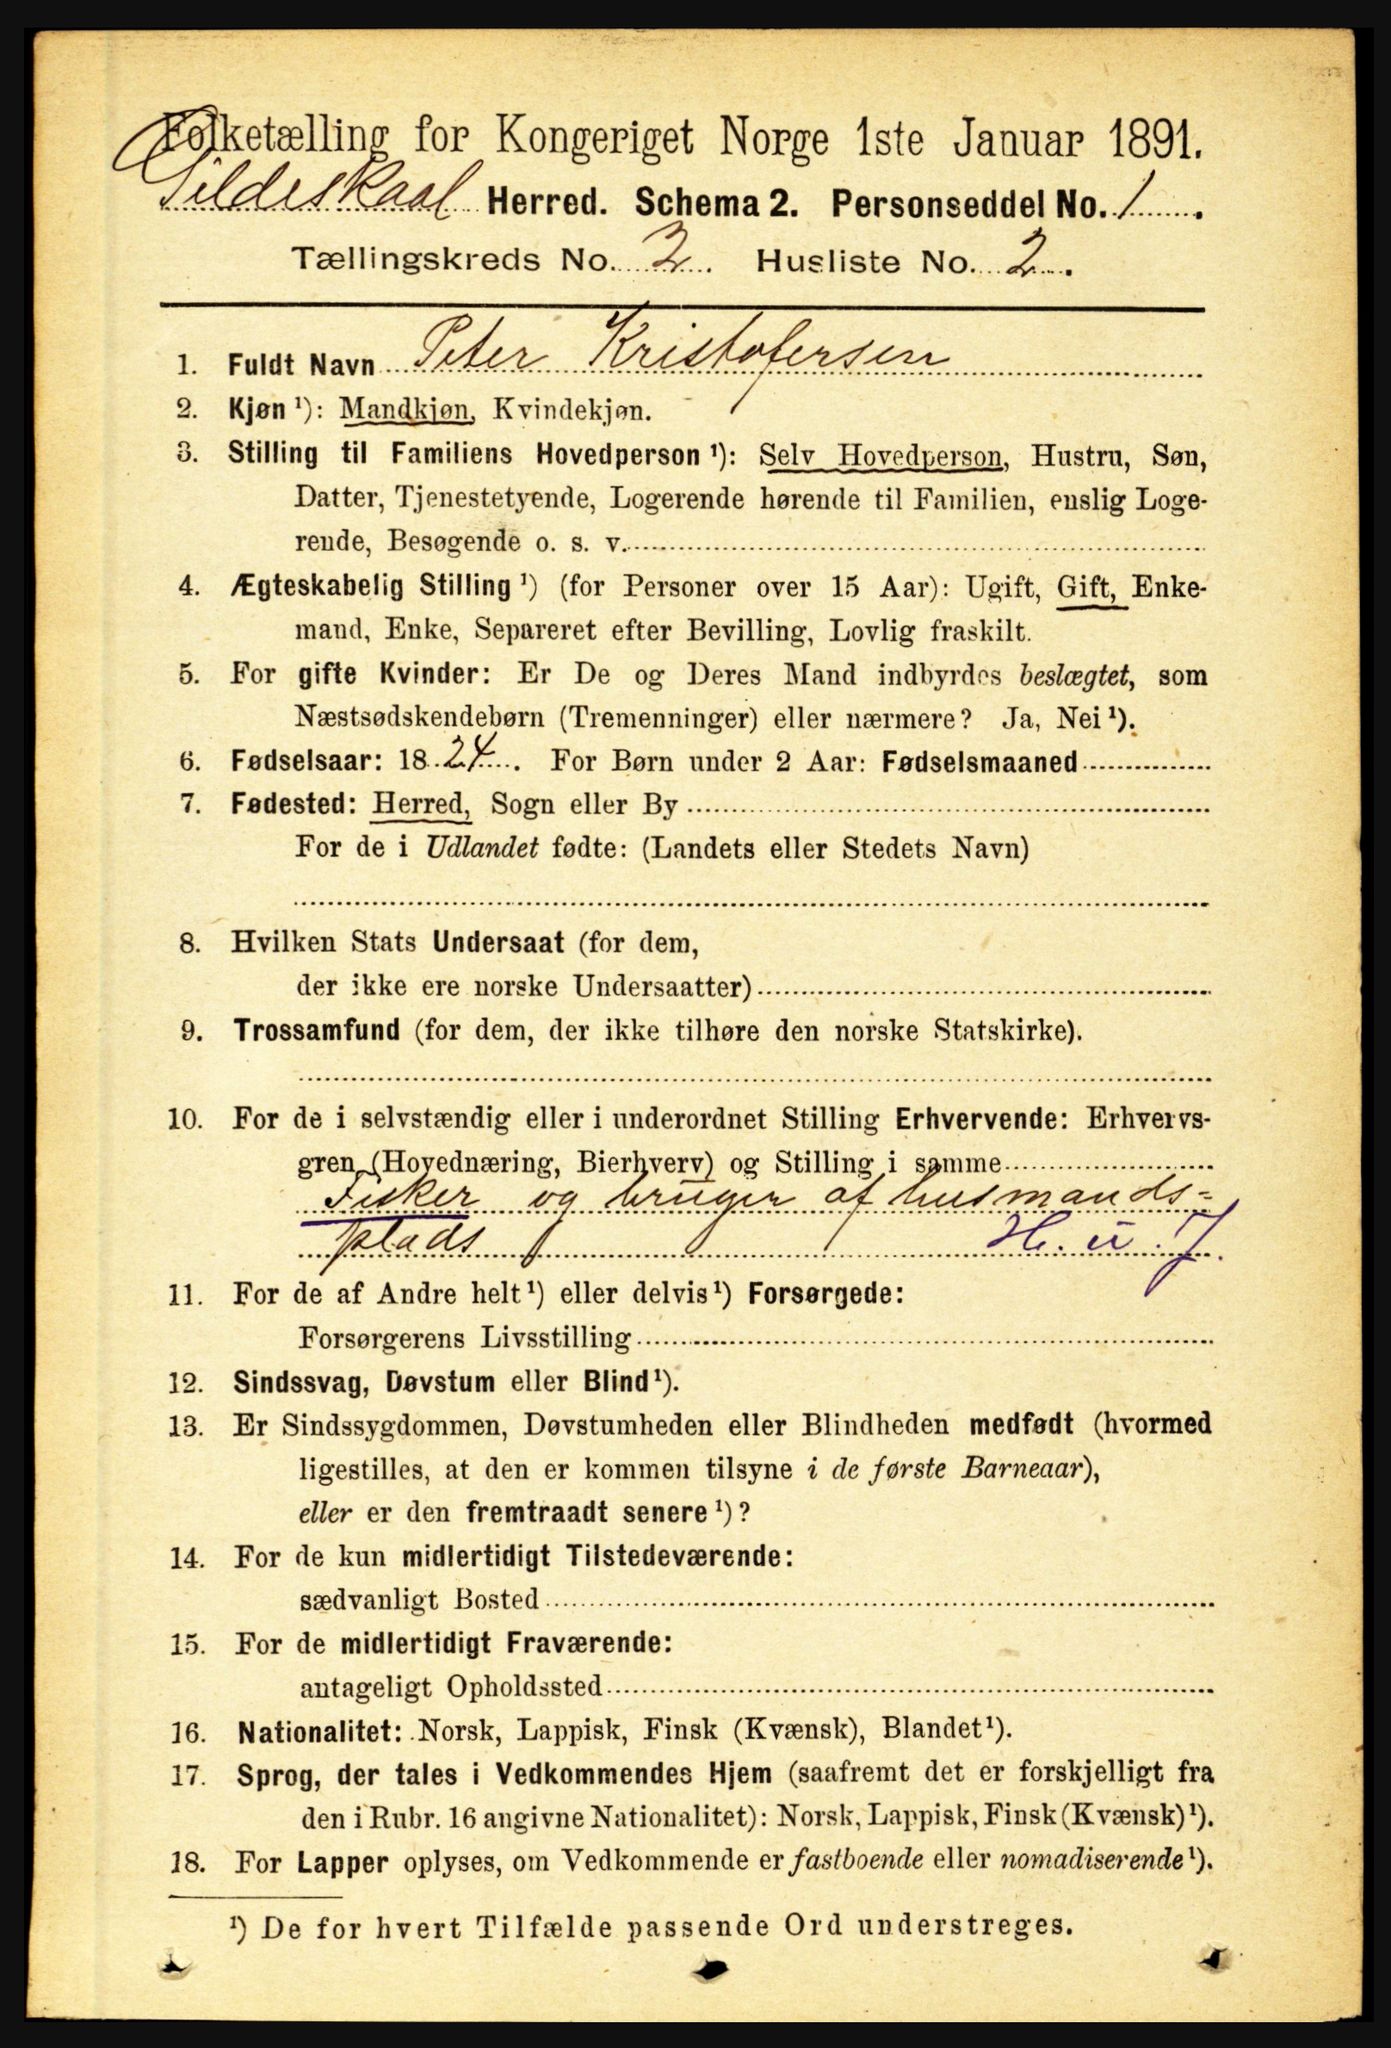 Folketælling for Kongeriget Norge 1ste Januar 1891.
Gildeskaal Herred. Schema 2. Personseddel No. 1.
Tællingskreds No. 2. Husliste No. 2.
1. Fuldt Navn Peter Kristofersen
2. Kjøn ¹): Mandkjøn, Kvindekjøn.
3. Stilling til Familiens Hovedperson ¹): Selv Hovedperson, Hustru, Søn,
Datter, Tjenestetyende, Logerende hørende til Familien, enslig Loge-
rende, Besøgende o. s. v.
4. Ægteskabelig Stilling ¹) (for Personer over 15 Aar): Ugift, Gift, Enke-
mand, Enke, Separeret efter Bevilling, Lovlig fraskilt.
5. For gifte Kvinder: Er De og Deres Mand indbyrdes beslægtet, som
Næstsødskendebørn (Tremenninger) eller nærmere? Ja, Nei ¹).
6. Fødselsaar: 1824. For Børn under 2 Aar: Fødselsmaaned
7. Fødested: Herred, Sogn eller By
For de i Udlandet fødte: (Landets eller Stedets Navn)
8. Hvilken Stats Undersaat (for dem,
der ikke ere norske Undersaatter)
9. Trossamfund (for dem, der ikke tilhøre den norske Statskirke).
10. For de i selvstændig eller i underordnet Stilling Erhvervende: Erhvervs-
gren (Hovednæring, Bierhverv) og Stilling i samme
Fisker og bruger af husmands-
plads H. u. J.
11. For de af Andre helt ¹) eller delvis ¹) Forsørgede:
Forsørgerens Livsstilling
12. Sindssvag, Døvstum eller Blind ¹).
13. Er Sindssygdommen, Døvstumheden eller Blindheden medfødt (hvormed
ligestilles, at den er kommen tilsyne i de første Barneaar),
eller er den fremtraadt senere ¹)?
14. For de kun midlertidigt Tilstedeværende:
sædvanligt Bosted
15. For de midlertidigt Fraværende:
antageligt Opholdssted
16. Nationalitet: Norsk, Lappisk, Finsk (Kvænsk), Blandet ¹).
17. Sprog, der tales i Vedkommendes Hjem (saafremt det er forskjelligt fra
den i Rubr. 16 angivne Nationalitet): Norsk, Lappisk, Finsk (Kvænsk) ¹).
18. For Lapper oplyses, om Vedkommende er fastboende eller nomadiserende ¹).
¹) De for hvert Tilfælde passende Ord understreges.